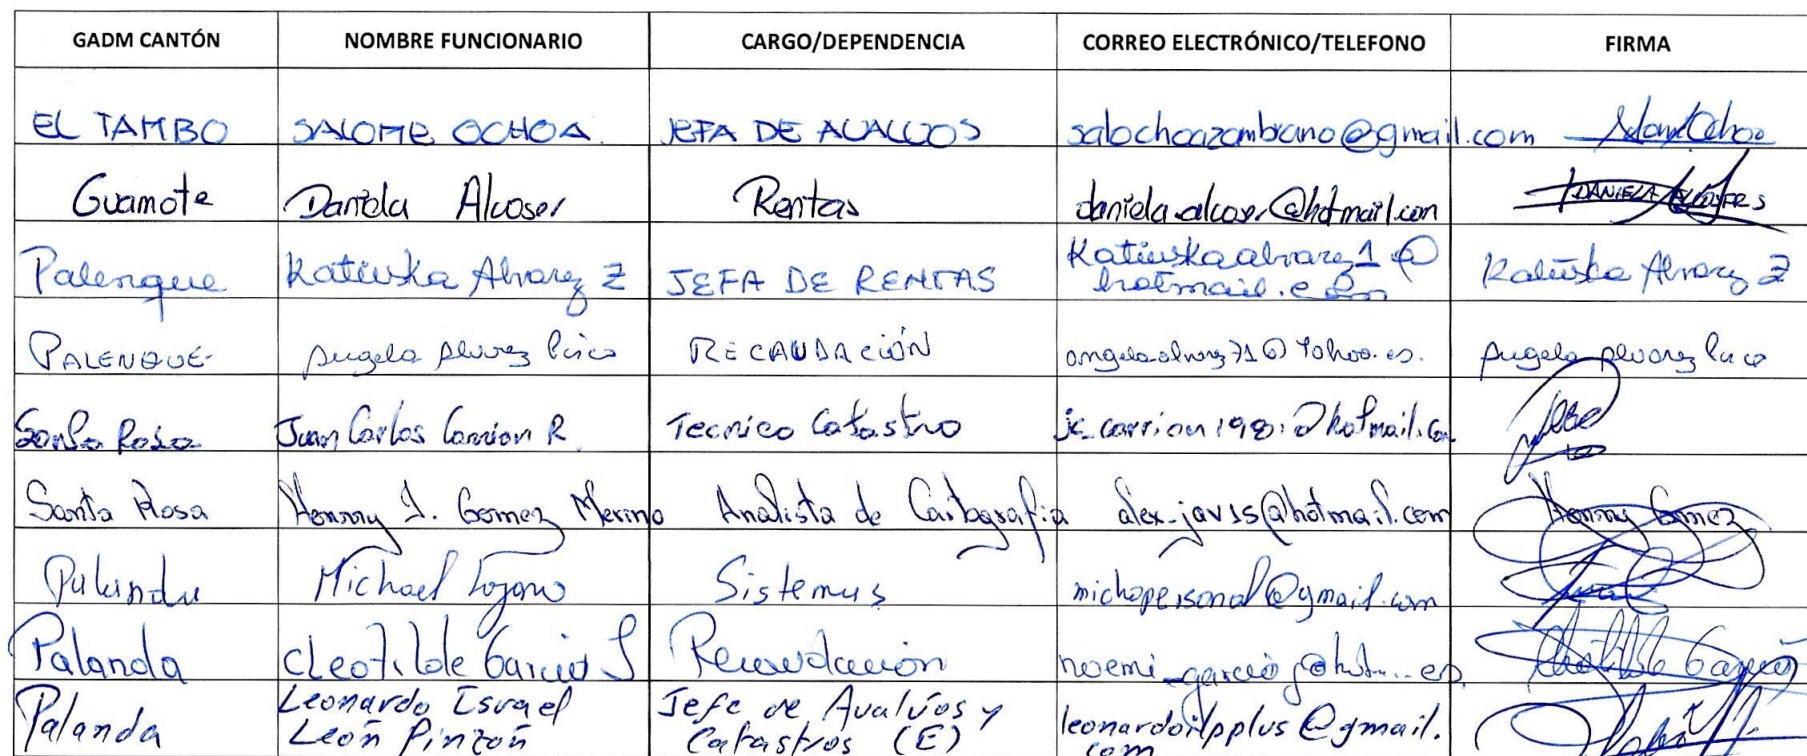 GADM CANTÓN NOMBRE FUNCIONARIO CARGO/DEPENDENCIA CORREO ELECTRÓNICO/TELEFONO FIRMA
EL TAMBO SALOME OCHOA JEFA DE AVALUOS salochoazambrano@gmail.com
Guamote Daniela Alcoser Rentas daniela-alcoser@hotmail.com DANIELA
Palenque Katiuska Alvarez Z JEFA DE RENTAS Katiuskaalvarez1@ Katiuska Alvarez Z
hotmail.com
PALENQUE Angela Alvarez RECAUDACIÓN angelaalvarez71@yahoo.es. Angela Alvarez
Santa Rosa Juan Carlos Carrion R. Tecnico Catastro @hotmail.com
Santa Rosa Henrry J. Gomez Merino Analista de Cartografia alex-javs@hotmail.com Henrry Gomez
Palanda Michael Lozano Sistemas michopersonal@gmail.com
Palanda Cleotilde Garcia J Recaudacion Cleotilde Garcia
Palanda Leonardo Israel Jefe de Avalúos y leonardoilpplus@gmail.
León Pinzón Catastros (E) com